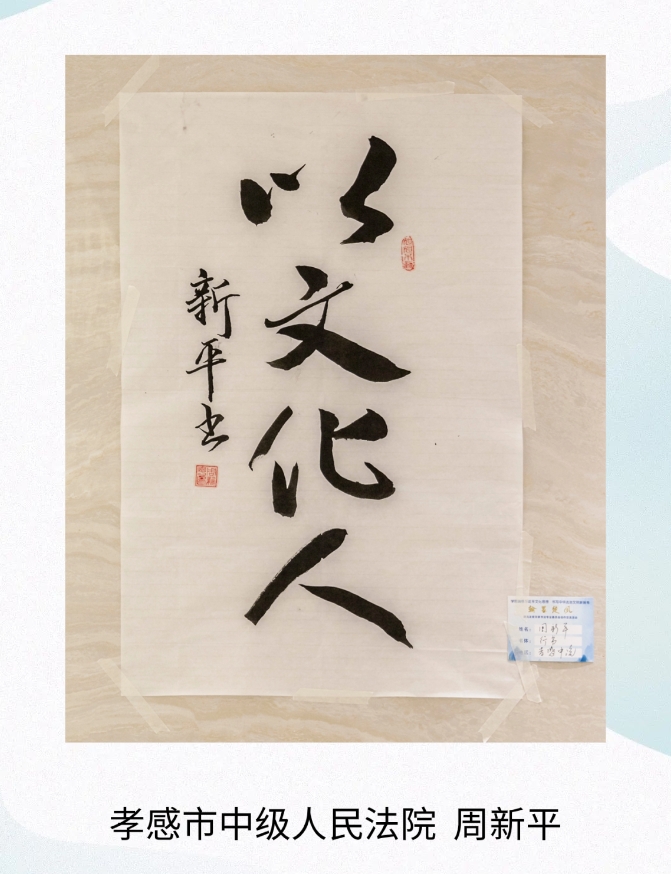 以文化人
新平书
翰墨楚风
周新平
行书
孝感中院
孝感市中级人民法院 周新平